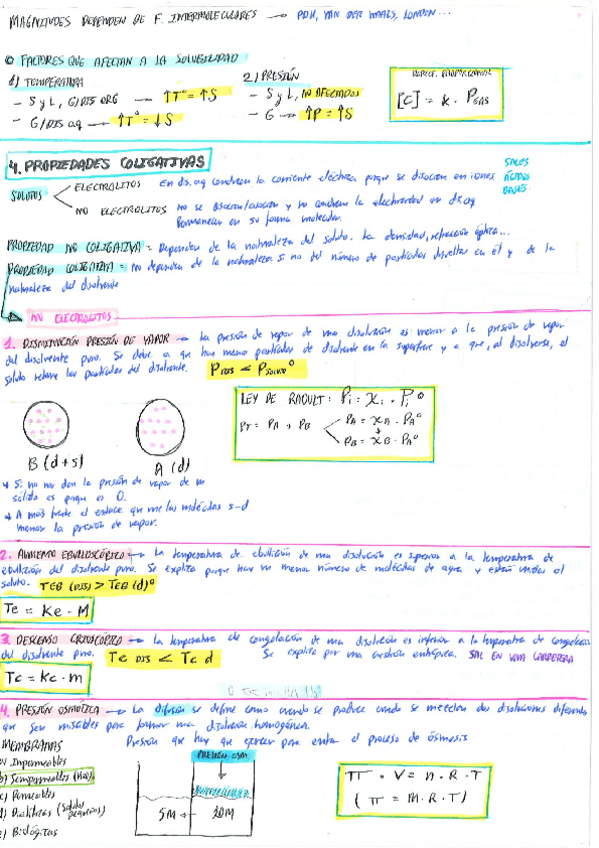 MAGNITUDES DEPENDEN DE F. INTERMOLECULARES → PDH, VAN DER WAALS, LONDON...
FACTORES QUE AFECTAN A LA SOLUBILIDAD
1) TEMPERATURA
- S y L, G/DIS ORG → ↑Tº = ↑S
- G/DIS aq → ↑Tº = ↓S
2) PRESIÓN
- S y L, NO AFECTADOS
- G → ↑P = ↑S
[C] = k · PGAS
4. PROPIEDADES COLIGATIVAS
SOLUTOS
ELECTROLITOS En dis. aq conducen la corriente eléctrica porque se disocian en iones
SALES
ÁCIDOS
BASES
NO ELECTROLITOS no se disocian/ionizan y no conducen la electricidad en dis. aq
Permanecen en su forma molecular.
PROPIEDAD NO COLIGATIVA = Dependen de la naturaleza del soluto. La densidad, refracción óptica...
PROPIEDAD COLIGATIVA = no dependen de la naturaleza si no del número de partículas disueltas en él y de la
naturaleza del disolvente
NO ELECTROLITOS
1. DISMINUCIÓN PRESIÓN DE VAPOR → La presión de vapor de una disolución es menor a la presión de vapor
del disolvente puro. Se debe a que hay menos partículas de disolvente en la superficie y a que, al disolverse, el
soluto retiene las partículas del disolvente.
LEY DE RAOULT: Pi = Xi · Piº
PT = PA + PB
PA = XA · PAº
PB = XB · PAº
B (d+s)
A (d)
→ Si no nos dan la presión de vapor de un
sólido es porque es 0.
→ A más fuerte el enlace que une las moléculas s-d
menor la presión de vapor.
2. AUMENTO EBULLOSCÓPICO → La temperatura de ebullición de una disolución es superior a la temperatura de
ebullición del disolvente puro. Se explica porque hay un menor número de moléculas de agua y están unidas al
soluto. TEB (DIS) > TEB (d)º
Te = Ke · M
3. DESCENSO CRIOSCÓPICO → La temperatura de congelación de una disolución es inferior a la temperatura de congelación
del disolvente puro. Tc DIS < Tc d Se explica por una cuestión entrópica. SAL EN UNA CARRETERA
Tc = Kc · m
4. PRESIÓN OSMÓTICA → La difusión se define como cuando se produce cuando se mezclan dos disoluciones diferentes
que son miscibles para formar una disolución homogénea.
MEMBRANAS Presión que hay que ejercer para evitar el proceso de ósmosis
a) Impermeables
b) Semipermeables (H2O)
c) Permeables
d) Dialíticas (Soluto pequeños)
e) Biológicas
PRESIÓN OSM.
5M
10M
π · V = n · R · T
(π = M · R · T)